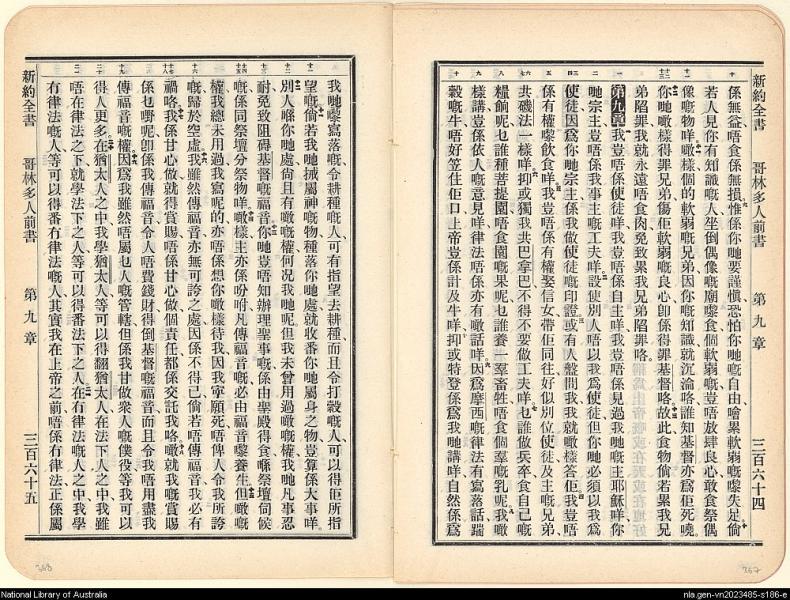 新約全書 哥林多人前書 第九章 三百六十四
係無益唔食係無損惟係你哋要謹慎恐怕你哋嘅自由噲累軟弱嘅嚟失足倘
若人見你有知識嘅人坐倒偶像嘅廟嚟食個軟弱嘅豈唔放肆良心敢食祭偶
像嘅物咩噉樣個的軟弱嘅兄弟因你嘅知識就沉淪咯誰知基督亦爲佢死嘵
你哋噉樣得罪兄弟傷佢軟弱嘅良心卽係得罪基督咯故此食物倘若累我兄
弟陷罪我就永遠唔食肉免致累我兄弟陷罪咯
第九章 我豈唔係使徒咩我豈唔係自主咩我豈唔係見過我哋嘅主耶穌咩你
哋豈唔係我事主嘅工夫咩設使別人唔以我爲使徒但你哋必須以我爲
使徒因爲你哋宗主係我做使徒嘅印證或有人盤問我我就噉樣答佢我豈唔
係有權嚟飲食咩我豈唔係有權娶信女帶佢同往好似別位使徒及主嘅兄弟
共磯法一樣咩抑或獨我共巴拿巴不得不要做工夫咩乜誰做兵卒食自己嘅
糧餉呢乜誰種菩提園唔食園嘅果呢乜誰養一羣畜牲唔食個羣嘅乳呢我噉
樣講豈係依人嘅意見咩律法唔係亦有噉話咩因爲摩西嘅律法有寫落話踹
穀嘅牛唔好笠住佢口上帝豈係計及牛咩抑或特登係爲我哋講咩自然係爲
我哋嚟寫落嘅令耕種嘅人可有指望去耕種而且令打穀嘅人可以得佢所指
望嘅倘若我哋撼屬神嘅物種落你哋處就收番你哋屬身之物豈算係大事咩
別人喺你哋處尙且有噉嘅權何況我哋呢但我未曾用過噉嘅權我哋凡事忍
耐免致阻碍基督嘅福音你哋豈唔知辦理聖事嘅係由聖殿得食喺祭壇伺候
嘅係同祭壇分祭物咩噉樣主亦係吩咐凡傳福音嘅必由福音嚟養生但噉嘅
權我總未用過我寫呢的亦唔係想你噉樣待我因我寧願死唔俾人令我所誇
嘅歸於空虛我雖然傳福音亦無可誇之處因係不得已倘若唔傳福音我必有
禍咯我係甘心做就得賞賜唔係甘心做個責任都係交託我咯噉就我嘅賞賜
係乜嘢呢卽係我傳福音令人唔費錢財得倒基督嘅福音而且令我唔用盡我
傳福音嘅權因爲我雖然唔屬乜人嘅管轄但係我甘做衆人嘅僕役等我可以
得人更多在猶太人之中我學猶太人等可以得翻猶太人在法下人之中我雖
唔在律法之下就學法下之人等可以得番法下之人在冇律法嘅人之中我學
冇律法嘅人等可以得番冇律法嘅人其實我在上帝之前唔係冇律法正係屬
新約全書 哥林多人前書 第九章 三百六十五
368
367
National Library of Australia
nla.gen-vn2023485-s186-e